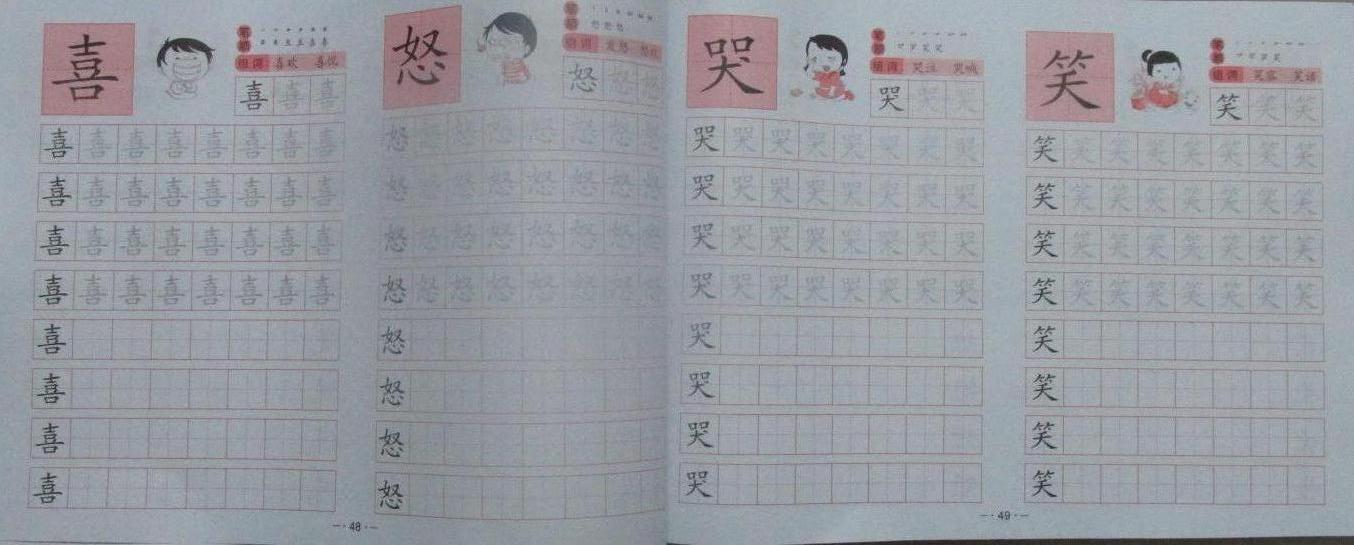 喜
笔顺
组词 喜欢 喜悦
喜 喜 喜
喜 喜 喜 喜 喜 喜 喜 喜
喜 喜 喜 喜 喜 喜 喜 喜
喜 喜 喜 喜 喜 喜 喜 喜
喜 喜 喜 喜 喜 喜 喜 喜
喜
喜
喜
喜
怒
笔顺
组词 发怒
怒 怒 怒
怒 怒 怒 怒 怒 怒 怒 怒
怒 怒 怒 怒 怒 怒 怒
怒 怒 怒 怒 怒 怒 怒 怒
怒 怒 怒 怒 怒 怒 怒 怒
怒
怒
怒
怒
-·48·-
哭
笔顺
组词 哭泣 哭喊
哭 哭
哭 哭 哭 哭 哭 哭 哭 哭
哭 哭 哭 哭 哭 哭 哭 哭
哭 哭 哭 哭 哭 哭 哭 哭
哭 哭 哭 哭 哭 哭 哭 哭
哭
哭
哭
哭
笑
笔顺
组词 笑容 笑话
笑 笑 笑
笑 笑 笑 笑 笑 笑 笑 笑
笑 笑 笑 笑 笑 笑 笑 笑
笑 笑 笑 笑 笑 笑 笑 笑
笑 笑 笑 笑 笑 笑 笑 笑
笑
笑
笑
笑
-·49·-